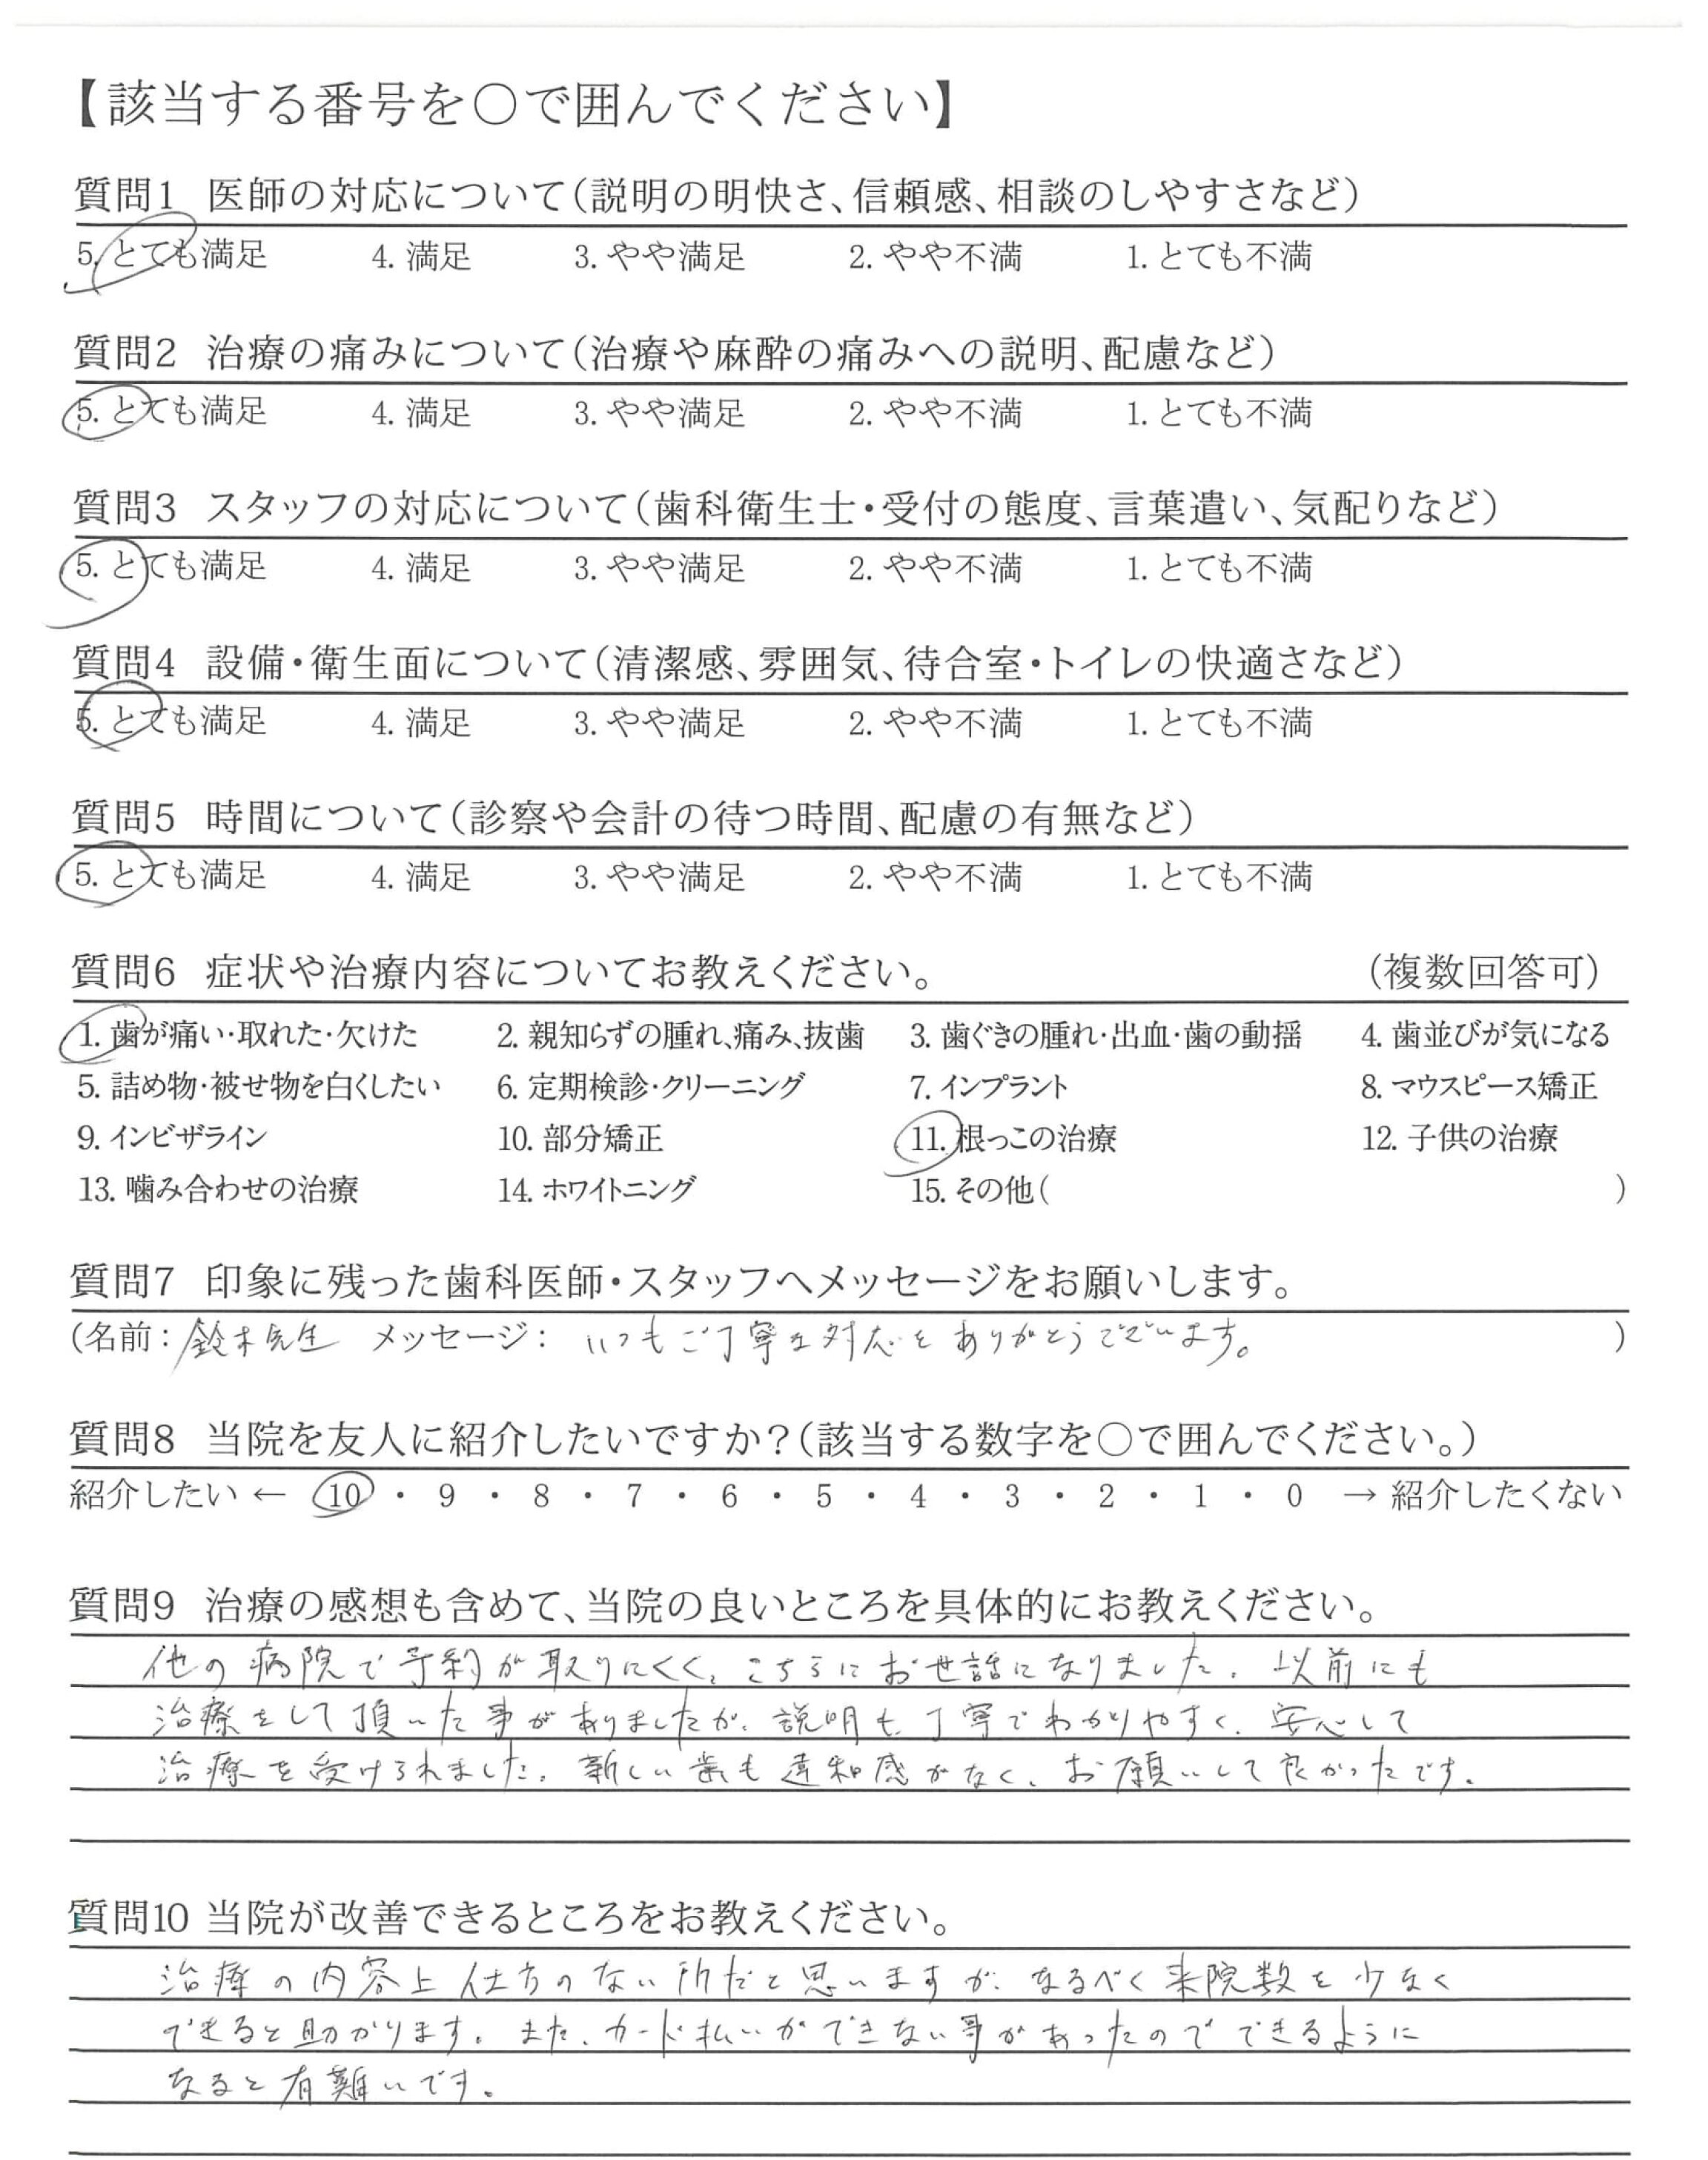 【該当する番号を〇で囲んでください】
質問1 医師の対応について(説明の明快さ、信頼感、相談のしやすさなど)
5. とても満足 4. 満足 3. やや満足 2. やや不満 1. とても不満
質問2 治療の痛みについて(治療や麻酔の痛みへの説明、配慮など)
5. とても満足 4. 満足 3. やや満足 2. やや不満 1. とても不満
質問3 スタッフの対応について(歯科衛生士・受付の態度、言葉遣い、気配りなど)
5. とても満足 4. 満足 3. やや満足 2. やや不満 1. とても不満
質問4 設備・衛生面について(清潔感、雰囲気、待合室・トイレの快適さなど)
5. とても満足 4. 満足 3. やや満足 2. やや不満 1. とても不満
質問5 時間について(診察や会計の待つ時間、配慮の有無など)
5. とても満足 4. 満足 3. やや満足 2. やや不満 1. とても不満
質問6 症状や治療内容についてお教えください。 (複数回答可)
1. 歯が痛い・取れた・欠けた 2. 親知らずの腫れ、痛み、抜歯 3. 歯ぐきの腫れ・出血・歯の動揺 4. 歯並びが気になる
5. 詰め物・被せ物を白くしたい 6. 定期検診・クリーニング 7. インプラント 8. マウスピース矯正
9. インビザライン 10. 部分矯正 11. 根っこの治療 12. 子供の治療
13. 噛み合わせの治療 14. ホワイトニング 15. その他( )
質問7 印象に残った歯科医師・スタッフへメッセージをお願いします。
(名前：鈴木先生 メッセージ： いつもご丁寧な対応をありがとうございます。 )
質問8 当院を友人に紹介したいですか？(該当する数字を〇で囲んでください。)
紹介したい ← 10 ・ 9 ・ 8 ・ 7 ・ 6 ・ 5 ・ 4 ・ 3 ・ 2 ・ 1 ・ 0 → 紹介したくない
質問9 治療の感想も含めて、当院の良いところを具体的にお教えください。
他の病院で予約が取りにくく、こちらにお世話になりました。以前にも
治療をして頂いた事がありましたが、説明も丁寧でわかりやすく、安心して
治療を受けられました。新しい歯も違和感がなく、お願いして良かったです。
質問10 当院が改善できるところをお教えください。
治療の内容上仕方のない所だと思いますが、なるべく来院数を少なく
できると助かります。また、カード払いができない事があったのでできるように
なると有難いです。